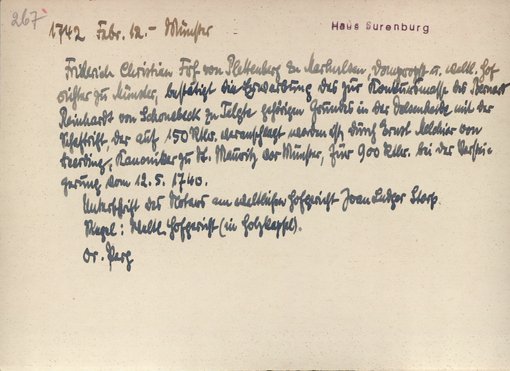 267
1742 Febr. 12.- Münster
Haus Surenburg
Friderich Christian Frh von Plettenberg zu Marhulsen, Dompropst u. weltl. Hof
richter zu Münster, bestätigt die Erwerbung des zur Konkursmasse des Bernard
Reinhardt von Schonebeck zu Telgte gehörigen Grundes in der mit der
, der auf 150 Rtlr. veranschlagt worden ist, durch Ernst Melchior von
, Kanoniker zu St. Mauritz vor Münster, für 900 Rtlr. bei der Verstei-
gerung vom 12. 5. 1740.
Unterschrift des Notars am weltlichen Hofgericht Joan Ludger Storp
Siegel: Weltl. Hofgericht (in Holzkapsel).
Or. Perg